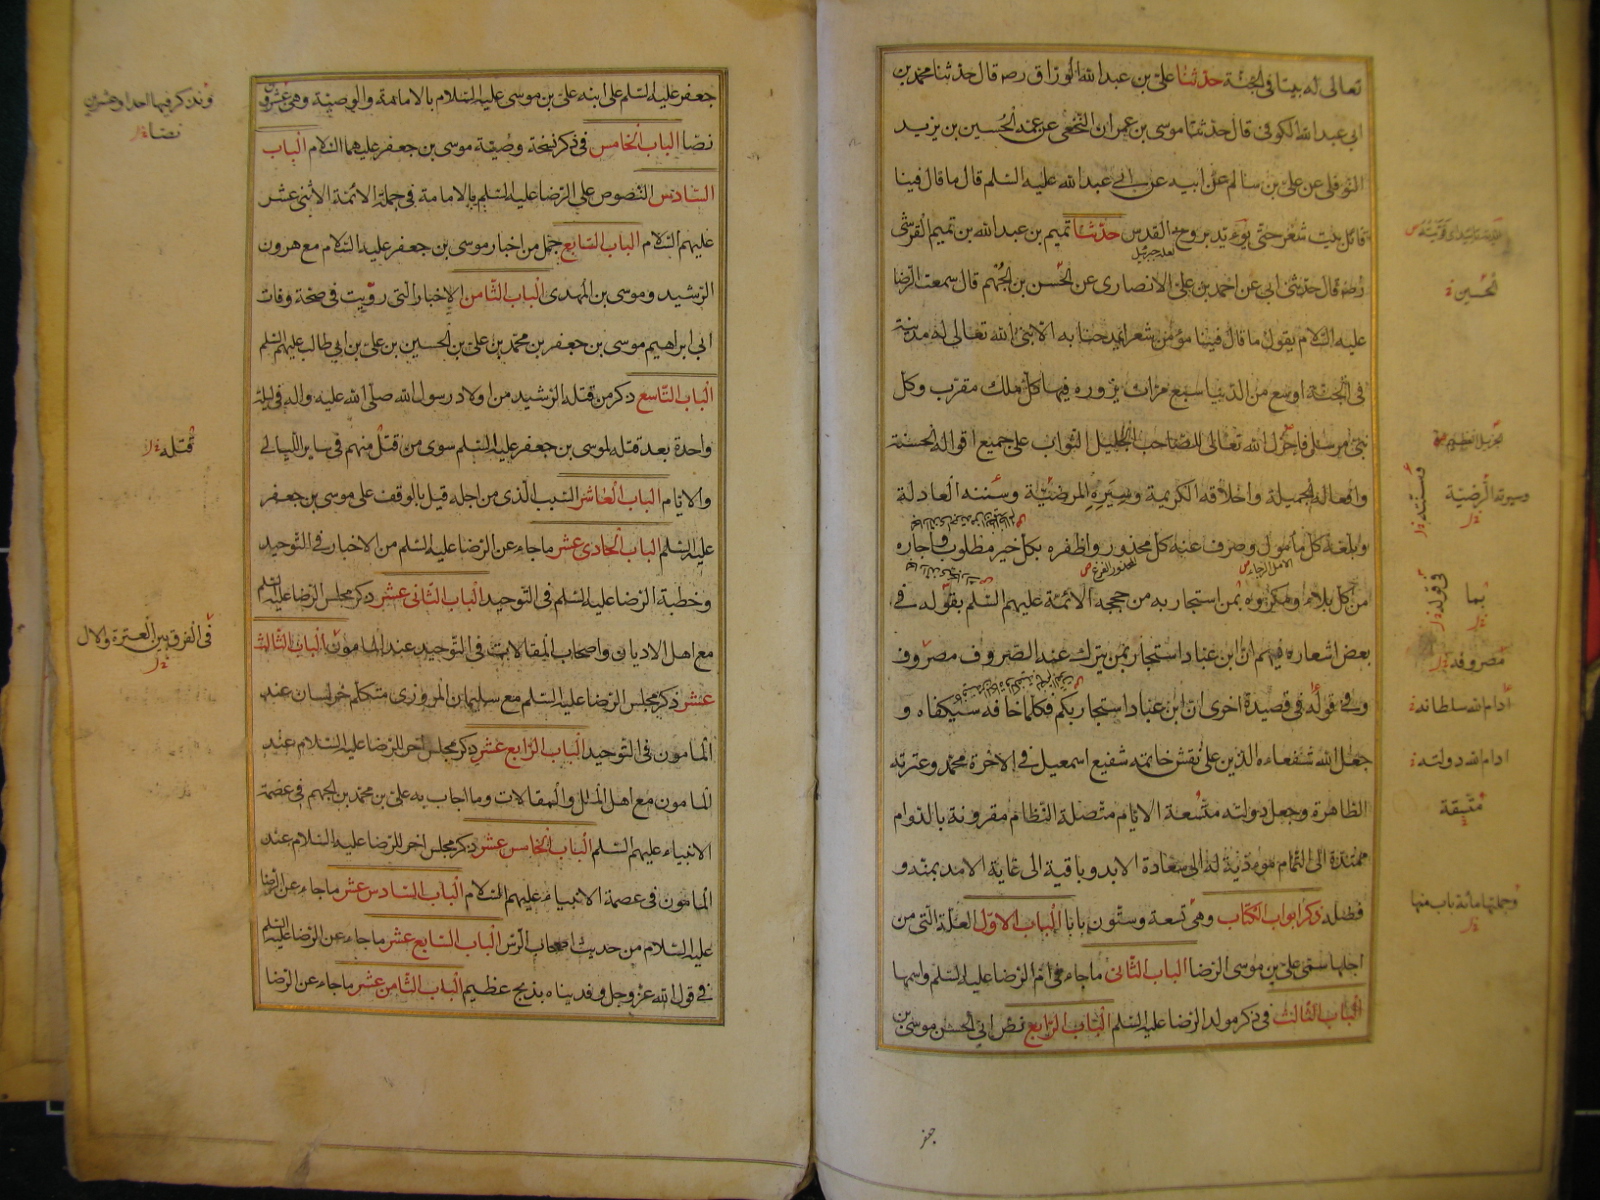 تعالى له بيتا في الجنة حدثنا علي بن عبد الله الوراق رضه قال حدثنا محمد بن
ابي عبد الله الكوفي قال حدثنا موسى بن عمران النخعي عن عمه الحسين بن يزيد
النوفلي عن علي بن سالم عن ابيه عن ابي عبد الله عليه السلم قال ما قال فينا
قائل بيت شعر حتى يؤيد بروح القدس حدثنا تميم بن عبد الله بن تميم القرشي
رضه قال حدثني ابي عن احمد بن علي الانصاري عن الحسن بن الجهم قال سمعت الرضا
عليه السلام يقول ما قال فينا مؤمن شعرا يمدحنا به الا بنى الله تعالى له مدينة
في الجنة اوسع من الدنيا سبع مرات يزوره فيها كل ملك مقرب وكل
نبي مرسل فاجزل الله تعالى للصاحب الجليل الثواب على جميع اقواله الحسنة
وافعاله الجميلة واخلاقه الكريمة وسيره المرضية وسننه العادلة
وبلغه كل مأمول وصرف عنه كل محذور واظفره بكل خير مطلوب واجاره
من كل بلاء ومكروه بمن استجار به من حججه الائمة عليهم السلم بقوله في
بعض اشعاره فيهم ان ابن عباد استجار بمن يترك عنه الصروف مصروف
وفي قوله في قصيدة اخرى ان ابن عباد استجار بكم فكلما خافه سيكفاه و
جعل الله شفعاءه الذين على نقش خاتمه شفيع اسمعيل في الاخرة محمد وعترته
الطاهرة وجعل دولته متسعة الايام متصلة النظام مقرونة بالدوام
ممتدة الى التمام مؤدية له الى سعادة الابد وباقية الى غاية الامد بمنه و
فضله ذكر ابواب الكتاب وهي تسعة وستون بابا الباب الاول العلة التي من
اجلها سمي علي بن موسى الرضا الباب الثاني ما جاء في ام الرضا عليه السلم واسمها
الباب الثالث في ذكر مولد الرضا عليه السلم الباب الرابع نص ابي الحسن موسى بن
الحسين
وسيرته الرضية
بما
مصروفه
أدام الله سلطانه
ادام الله دولته
متسقة
وجملتها مائة باب منها
جعفر
جعفر عليه السلم على ابنه علي بن موسى عليه السلام بالامامة والوصية وهي عشرون
نصا الباب الخامس في ذكر نسخة وصية موسى بن جعفر عليهما السلام الباب
السادس النصوص على الرضا عليه السلم بالامامة في جملة الائمة الاثنى عشر
عليهم السلام الباب السابع جمل من اخبار موسى بن جعفر عليه السلام مع هرون
الرشيد وموسى بن المهدى الباب الثامن الاخبار التي رويت في صحة وفات
ابي ابراهيم موسى بن جعفر بن محمد بن علي بن الحسين بن علي بن ابي طالب عليهم السلم
الباب التاسع ذكر من قتله الرشيد من اولاد رسول الله صلى الله عليه واله في ليلة
واحدة بعد قتله لموسى بن جعفر عليه السلم سوى من قتل منهم في ساير الليالي
والايام الباب العاشر السبب الذي من اجله قيل بالوقف على موسى بن جعفر
عليه السلم الباب الحادى عشر ما جاء عن الرضا عليه السلم من الاخبار في التوحيد
وخطبة الرضا عليه السلم في التوحيد الباب الثانى عشر ذكر مجلس الرضا عليه السلم
مع اهل الاديان واصحاب المقالات في التوحيد عند المامون الباب الثالث
عشر ذكر مجلس الرضا عليه السلم مع سليمان المروزي متكلم خراسان عند
المامون في التوحيد الباب الرابع عشر ذكر مجلس اخر للرضا عليه السلام عند
المامون مع اهل الملل والمقالات وما اجاب به علي بن محمد بن الجهم في عصمة
الانبياء عليهم السلم الباب الخامس عشر ذكر مجلس اخر للرضا عليه السلام عند
المامون في عصمة الانبياء عليهم السلام الباب السادس عشر ما جاء عن الرضا
عليه السلام من حديث اصحاب الرس الباب السابع عشر ما جاء عن الرضا عليه السلم
في قول الله عز وجل وفديناه بذبح عظيم الباب الثامن عشر ما جاء عن الرضا
ونذكر فيها احدا وعشرين
نصا
قتله
في الفرق بين العترة والال